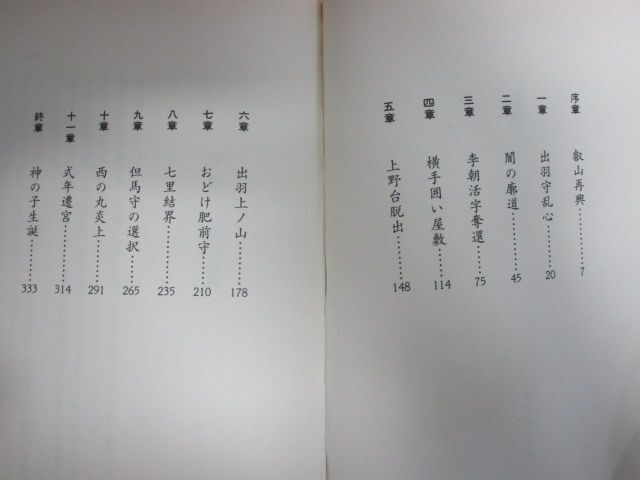 序章 叡山再興………7
一章 出羽守乱心………20
二章 闇の廓道………45
三章 李朝活字奪還………75
四章 横手囲い屋敷………114
五章 上野台脱出………148
六章 出羽上ノ山………178
七章 おどけ肥前守………210
八章 七里結界………235
九章 但馬守の選択………265
十章 西の丸炎上………291
十一章 式年遷宮………314
終章 神の子生誕………333